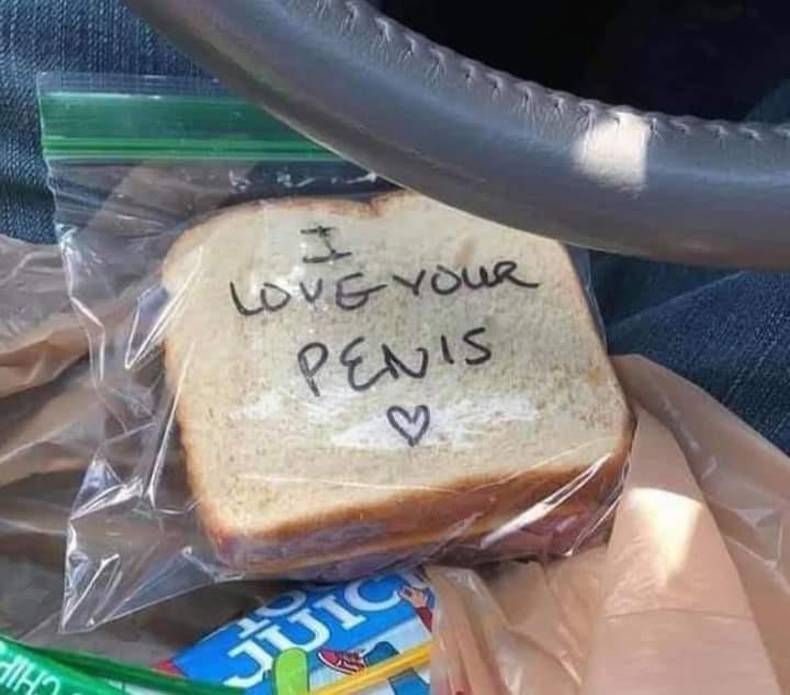 I
LOVE YOUR
PENIS
♡
JUIC
CHIP